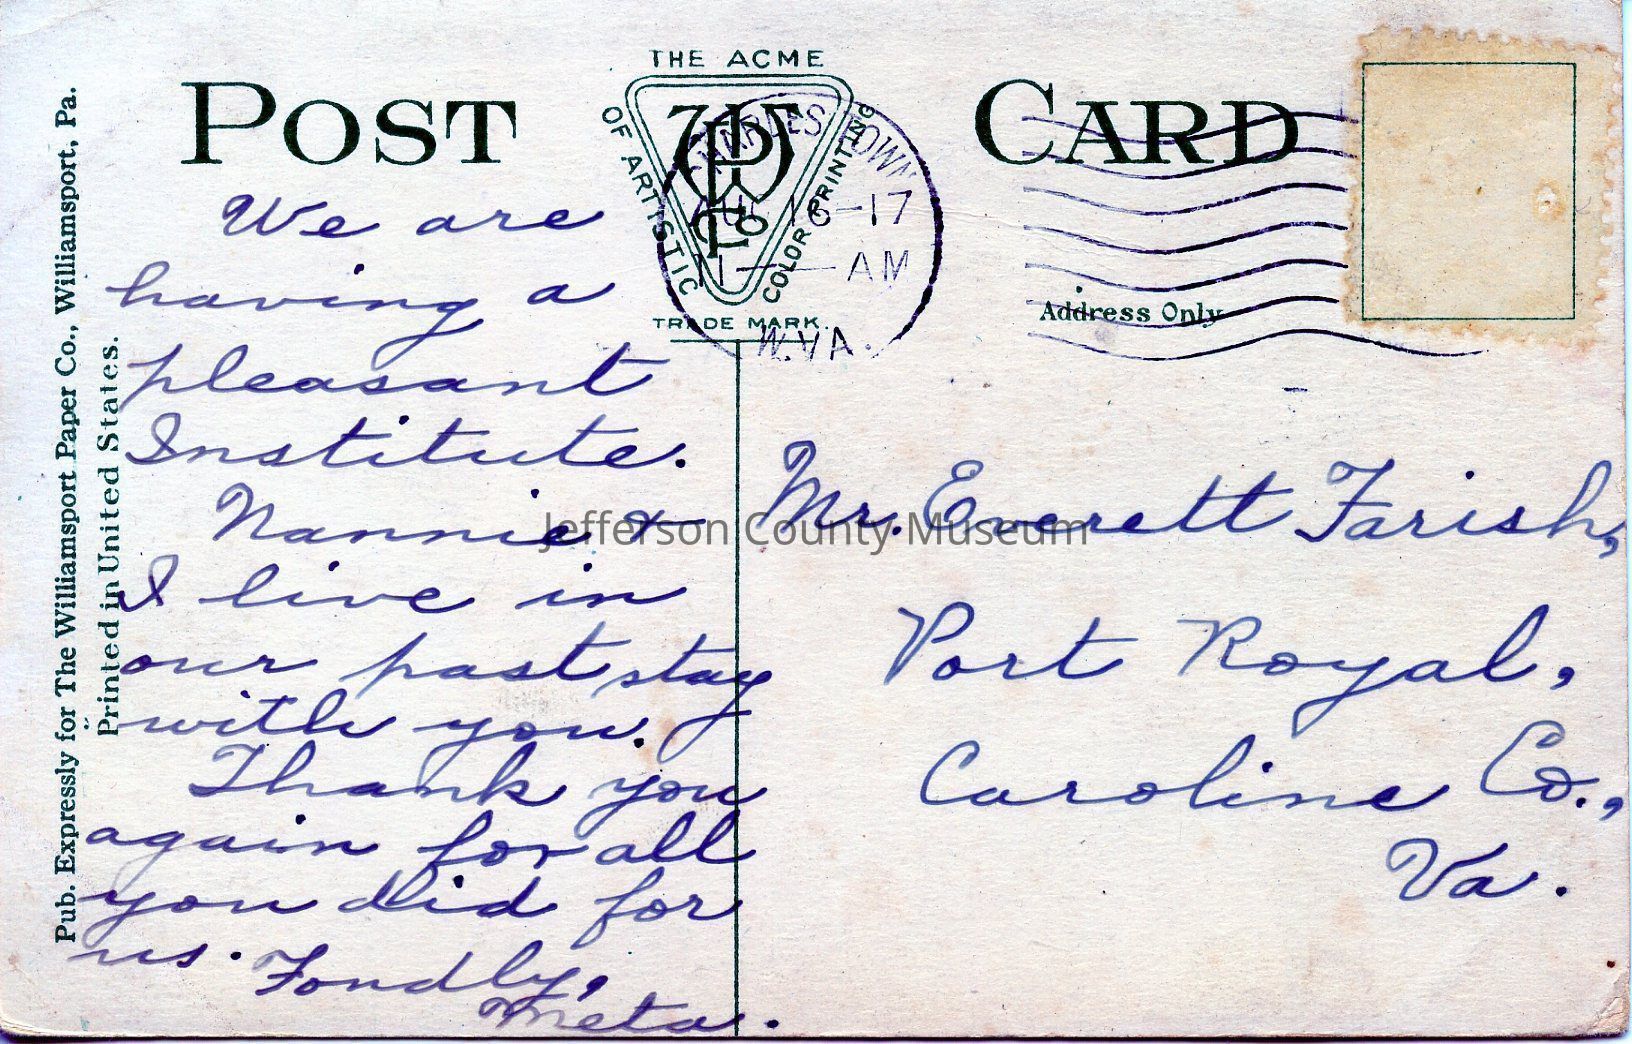 POST CARD
THE ACME
OF ARTISTIC
COLOR PRINTING
TRADE MARK.
CHARLES TOWN
JUL 16-17
11— —AM
W.VA.
Address Only
Pub. Expressly for The Williamsport Paper Co., Williamsport, Pa.
Printed in United States.
We are
having a
pleasant
Institute.
Nannie &
I live in
our past stay
with you.
Thank you
again for all
you did for
us. Fondly,
Meta.
Mr. Everett Farish,
Port Royal,
Caroline Co.,
Va.
Jefferson County Museum